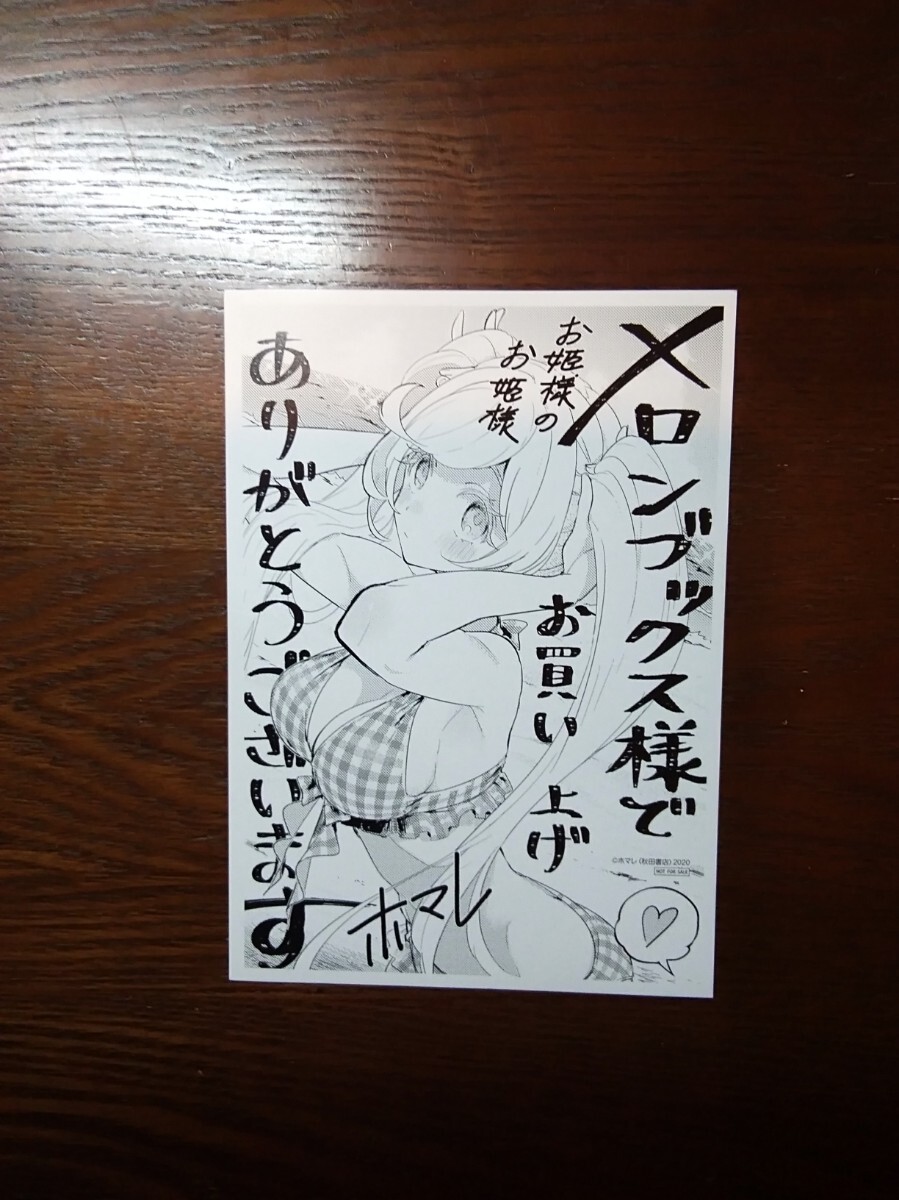 お姫様の
お姫様
メロンブックス様で
お買い上げ
ありがとうございます
ホマレ
©ホマレ(秋田書店)2020
NOT FOR SALE